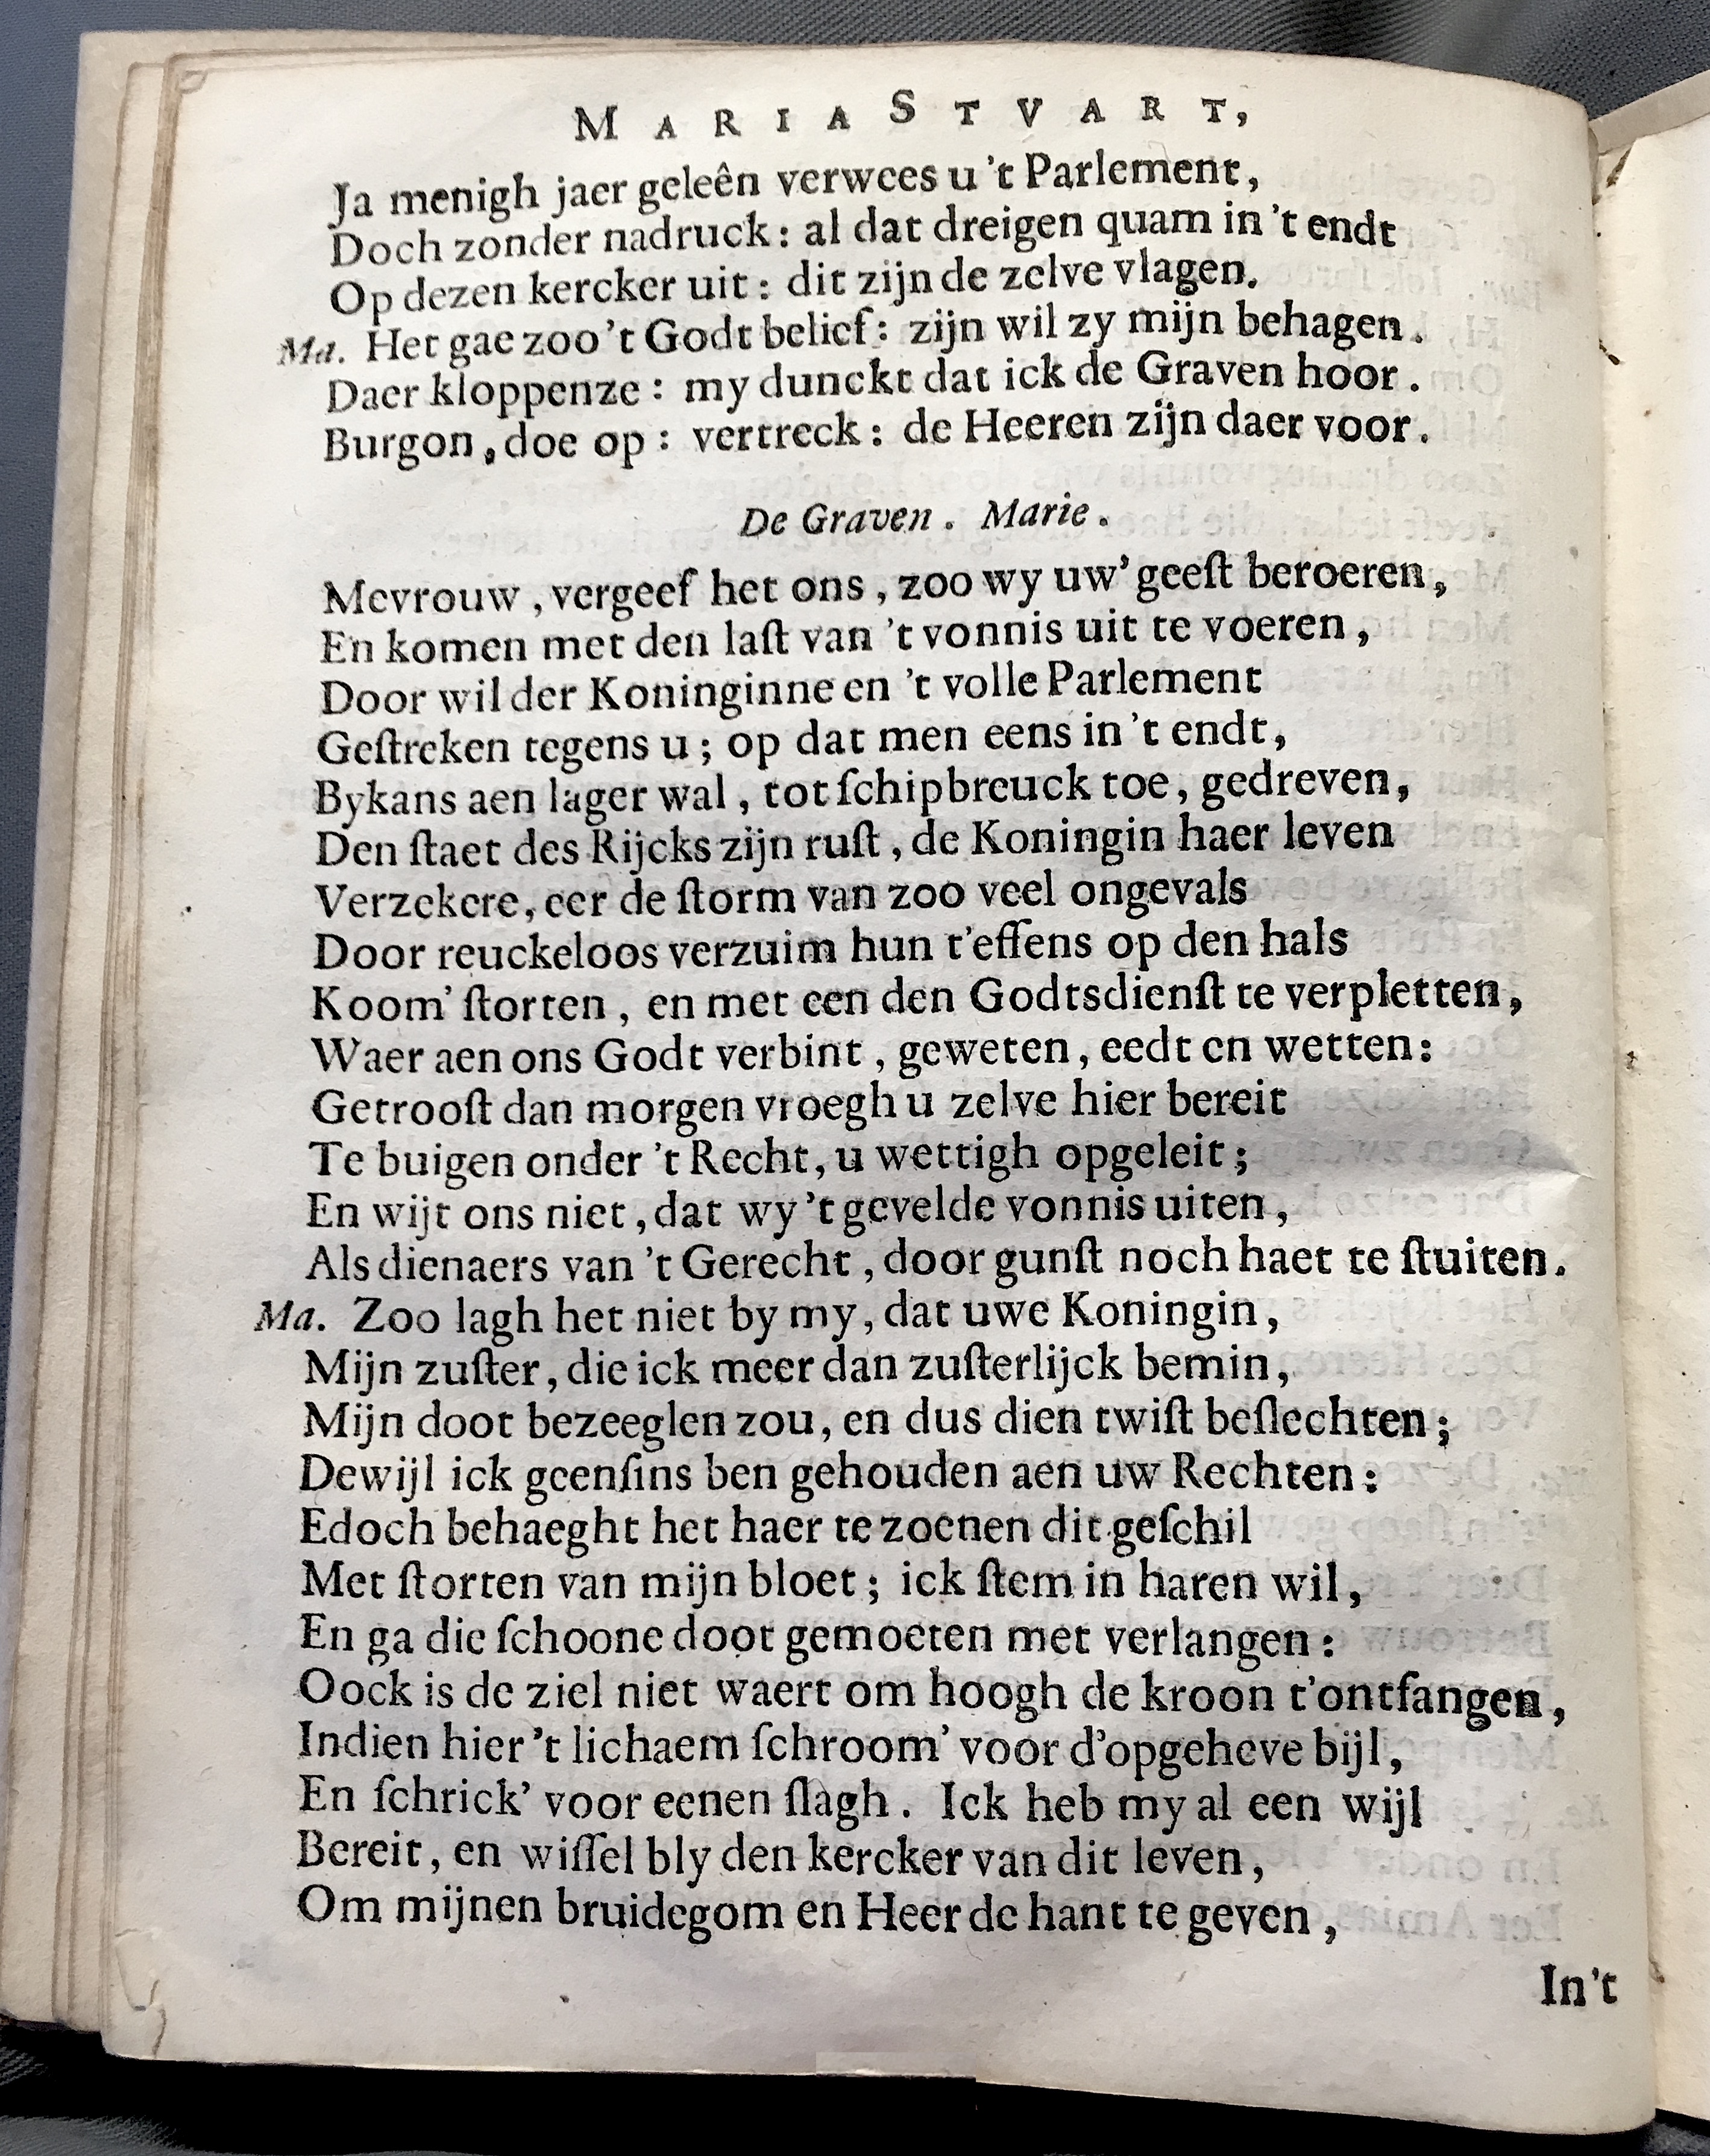 MARIA STVART,
Ja menigh jaer geleên verwees u 't Parlement,
Doch zonder nadruck: al dat dreigen quam in 't endt
Op dezen kercker uit: dit zijn de zelve vlagen.
Ma. Het gae zoo 't Godt belief: zijn wil zy mijn behagen.
Daer kloppenze: my dunckt dat ick de Graven hoor.
Burgon, doe op: vertreck: de Heeren zijn daer voor.
De Graven. Marie.
Mevrouw, vergeef het ons, zoo wy uw' geeſt beroeren,
En komen met den laſt van 't vonnis uit te voeren,
Door wil der Koninginne en 't volle Parlement
Geſtreken tegens u; op dat men eens in 't endt,
Bykans aen lager wal, tot ſchipbreuck toe, gedreven,
Den ſtaet des Rijcks zijn ruſt, de Koningin haer leven
Verzekere, eer de ſtorm van zoo veel ongevals
Door reuckeloos verzuim hun t'effens op den hals
Koom' ſtorten, en met een den Godtsdienſt te verpletten,
Waer aen ons Godt verbint, geweten, eedt en wetten:
Getrooſt dan morgen vroegh u zelve hier bereit
Te buigen onder 't Recht, u wettigh opgeleit;
En wijt ons niet, dat wy 't gevelde vonnis uiten,
Als dienaers van 't Gerecht, door gunſt noch haet te ſtuiten.
Ma. Zoo lagh het niet by my, dat uwe Koningin,
Mijn zuſter, die ick meer dan zuſterlijck bemin,
Mijn doot bezeeglen zou, en dus dien twiſt beſlechten;
Dewijl ick geenſins ben gehouden aen uw Rechten:
Edoch behaeght het haer te zoenen dit geſchil
Met ſtorten van mijn bloet; ick ſtem in haren wil,
En ga die ſchoone doot gemoeten met verlangen:
Oock is de ziel niet waert om hoogh de kroon t'ontfangen,
Indien hier 't lichaem ſchroom' voor d'opgeheve bijl,
En ſchrick' voor eenen ſlagh. Ick heb my al een wijl
Bereit, en wiſſel bly den kercker van dit leven,
Om mijnen bruidegom en Heer de hant te geven,
In 't